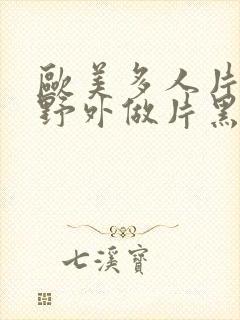 歐美多人片
野外做片黑
七溪寶